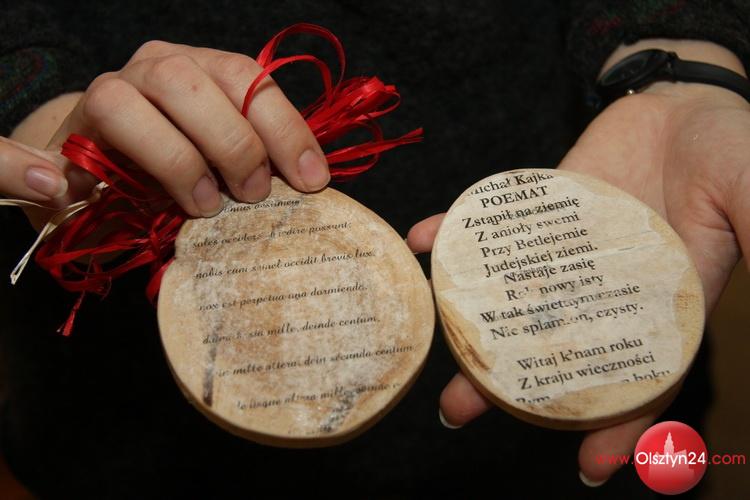 soles occidere et redire possunt:
nobis cum semel occidit brevis lux,
nox est perpetua una dormienda.
mille, deinde centum,
mille altera, dein secunda centum
usque altera mille,
Michał Kajka
POEMAT
Zstąpił na ziemię
Z anioły swemi
Przy Betlejemie
Judejskiej ziemi.
Nastaje zasię
Rok nowy isty
W tak świetnym czasie
Nie splamion, czysty.
Witaj k'nam roku
Z kraju wieczności
boku
www.Olsztyn24.com